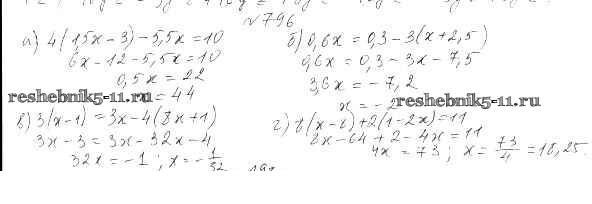 № 796
а) 4(1,5x-3)-5,5x=10
6x-12-5,5x=10
0,5x=22
x=44
б) 0,6x=0,3-3(x+2,5)
0,6x=0,3-3x-7,5
3,6x=-7,2
x=-2
reshebnik5-11.ru
reshebnik5-11.ru
в) 3(x-1)=3x-4(8x+1)
3x-3=3x-32x-4
32x=-1; x=-1/32
г) 8(x-8)+2(1-2x)=11
8x-64+2-4x=11
4x=73; x=73/4=18,25.